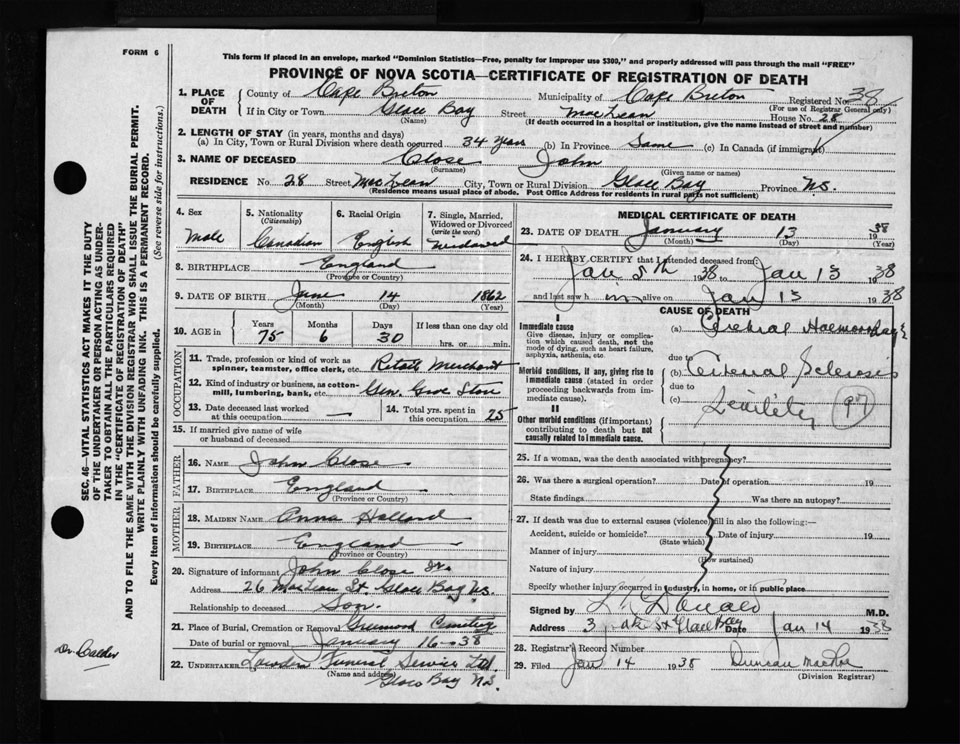 FORM 6
This form if placed in an envelope, marked "Dominion Statistics—Free, penalty for improper use $300," and properly addressed will pass through the mail "FREE"
PROVINCE OF NOVA SCOTIA—CERTIFICATE OF REGISTRATION OF DEATH
1. PLACE OF DEATH County of Cape Breton Municipality of Cape Breton Registered No. 38
(For use of Registrar General only)
If in City or Town Glace Bay Street MacLean House No. 28
(Name) (If death occurred in a hospital or institution, give the name instead of street and number)
2. LENGTH OF STAY (in years, months and days)
(a) In City, Town or Rural Division where death occurred 34 Years (b) In Province Same (c) In Canada (if immigrant)
3. NAME OF DECEASED Close John
(Surname) (Given name or names)
RESIDENCE No. 28 Street MacLean City, Town or Rural Division Glace Bay Province N.S.
(Residence means usual place of abode. Post Office Address for residents in rural parts not sufficient)
4. Sex Male
5. Nationality (Citizenship) Canadian
6. Racial Origin English
7. Single, Married, Widowed or Divorced (write the word) Widowed
8. BIRTHPLACE England
(Province or Country)
9. DATE OF BIRTH June 14 1862
(Month) (Day) (Year)
10. AGE in Years Months Days If less than one day old
75 6 30 hrs. or min.
OCCUPATION
11. Trade, profession or kind of work as spinner, teamster, office clerk, etc. Retail Merchant
12. Kind of industry or business, as cotton-mill, lumbering, bank, etc. Gen. Store
13. Date deceased last worked at this occupation —
14. Total yrs. spent in this occupation 25
15. If married give name of wife or husband of deceased
FATHER
16. NAME John Close
17. BIRTHPLACE England
MOTHER
18. MAIDEN NAME Anna Holland
19. BIRTHPLACE England
(Province or Country)
20. Signature of informant John Close Jr.
Address 26 MacLean St. Glace Bay N.S.
Relationship to deceased Son.
21. Place of Burial, Cremation or Removal Greenwood Cemetery
Date of burial or removal January 16-38
22. UNDERTAKER Funeral Service Ltd.
(Name and address)
Glace Bay N.S.
MEDICAL CERTIFICATE OF DEATH
23. DATE OF DEATH January 13 1938
(Month) (Day) (Year)
24. I HEREBY CERTIFY that I attended deceased from:
Jan 8th 1938 Jan 13 1938
and last saw him alive on Jan 13 1938
CAUSE OF DEATH
I
Immediate cause (a) Cerebral Haemorrhage
Give disease, injury or complication which caused death, not the mode of dying, such as heart failure, asphyxia, asthenia, etc.
due to
Morbid conditions, if any, giving rise to immediate cause (stated in order proceeding backwards from immediate cause). (b) Arterial Sclerosis
due to
(c) Senility 97
II
Other morbid conditions (if important) contributing to death but not causally related to immediate cause.
25. If a woman, was the death associated with pregnancy?
26. Was there a surgical operation? Date of operation 19
State findings Was there an autopsy?
27. If death was due to external causes (violence) fill in also the following:
Accident, suicide or homicide? Date of injury 19
(State which)
Manner of injury
(How sustained)
Nature of injury
Specify whether injury occurred in industry, in home, or in public place
Signed by M.D.
Address Glace Bay Date Jan 14 1938
28. Registrar's Record Number
29. Filed Jan 14 1938 Duncan
(Division Registrar)
SEC. 46—VITAL STATISTICS ACT MAKES IT THE DUTY
OF THE UNDERTAKER OR PERSON ACTING AS UNDER-
TAKER TO OBTAIN ALL THE PARTICULARS REQUIRED
IN THE "CERTIFICATE OF REGISTRATION OF DEATH"
AND TO FILE THE SAME WITH THE DIVISION REGISTRAR WHO SHALL ISSUE THE BURIAL PERMIT.
WRITE PLAINLY WITH UNFADING INK. THIS IS A PERMANENT RECORD.
Every item of information should be carefully supplied. (See reverse side for instructions.)
Dr. Calder